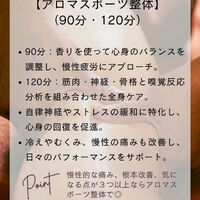 【アロマスポーツ整体】
（90分・120分）
• 90分：香りを使って心身のバランスを
調整し、慢性疲労にアプローチ。
• 120分：筋肉・神経・骨格と嗅覚反応
分析を組み合わせた全身ケア。
• 自律神経やストレスの緩和に特化し、
心身の回復を促進。
• 冷えやむくみ、慢性の痛みも改善し、
日々のパフォーマンスをサポート。
Point
慢性的な痛み、根本改善、気に
なる点が３つ以上ならアロマス
ポーツ整体で◎